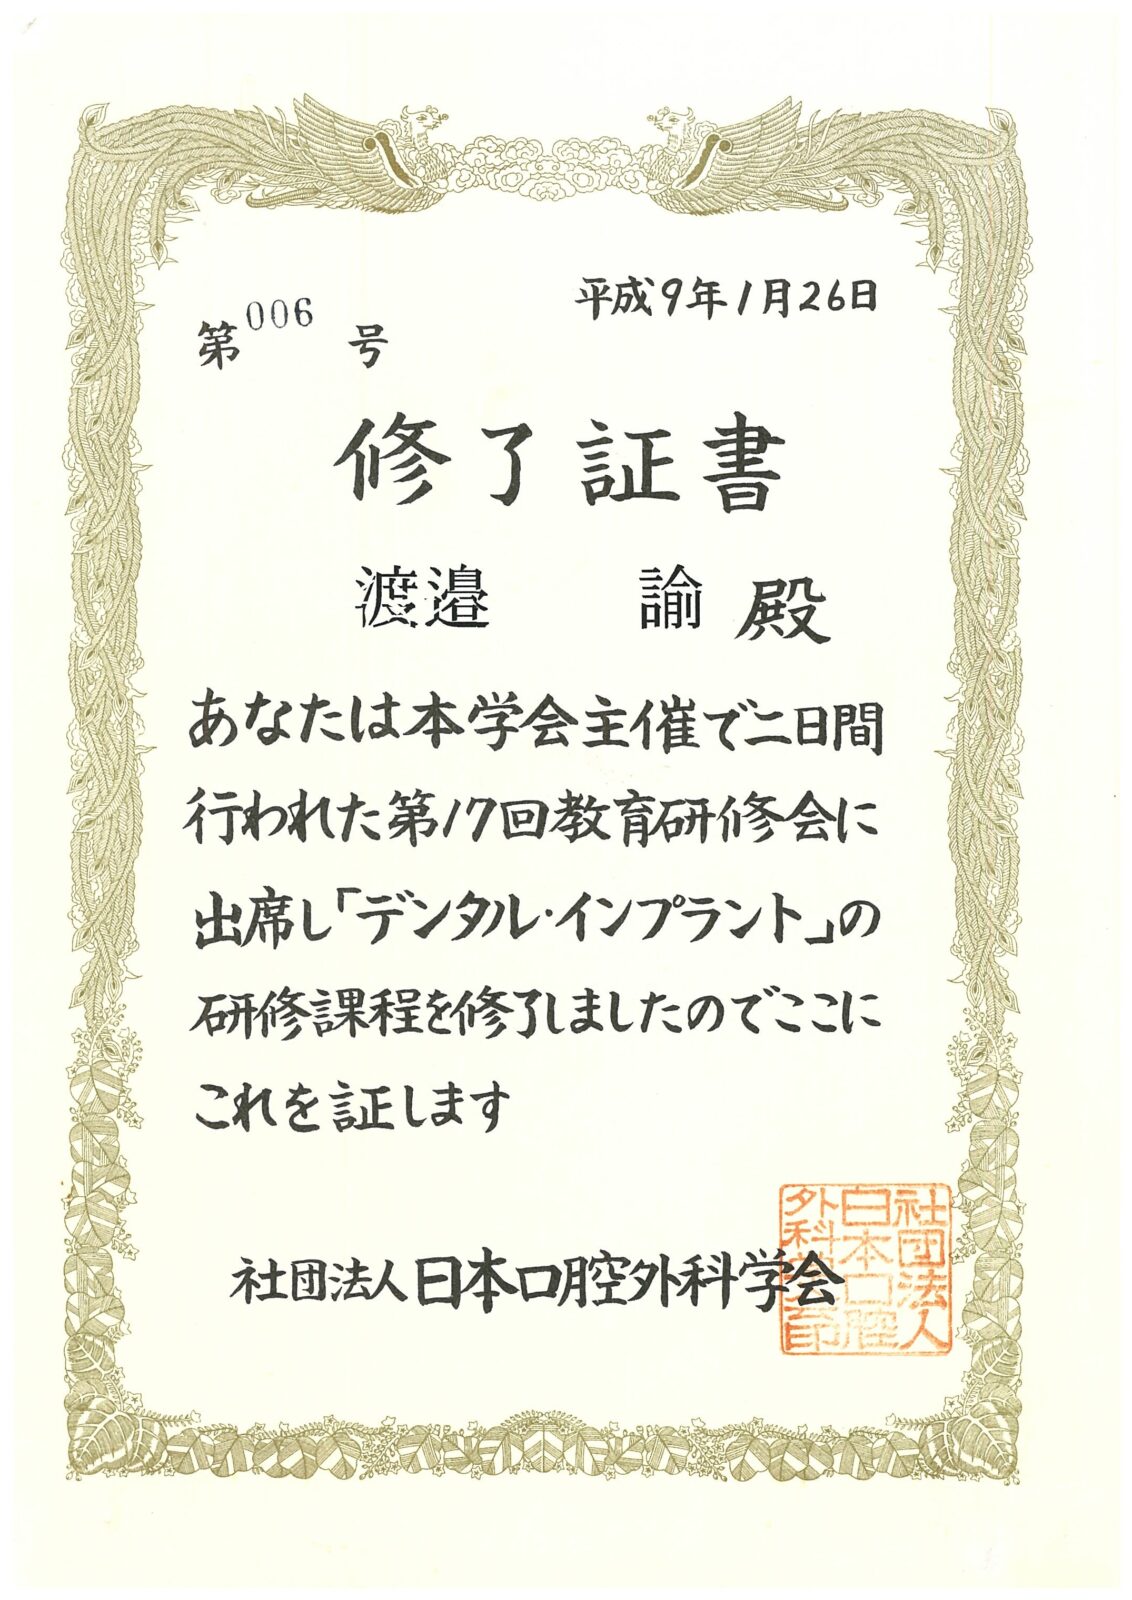 平成9年1月26日
第006号
修了証書
渡邉 諭 殿
あなたは本学会主催で二日間
行われた第17回教育研修会に
出席し「デンタル・インプラント」の
研修課程を修了しましたのでここに
これを証します
社団法人日本口腔外科学会
社団法人
日本口腔
外科学会印